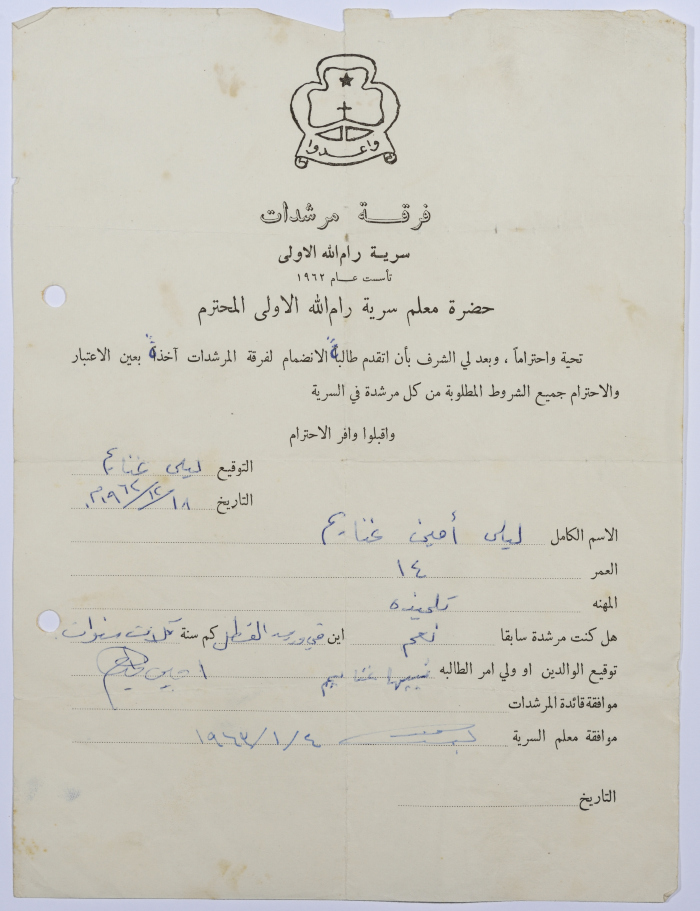 واعدوا
فرقة مرشدات
سرية رام الله الاولى
تأسست عام ١٩٦٢
حضرة معلم سرية رام الله الاولى المحترم
تحية واحتراماً ، وبعد لي الشرف بأن اتقدم طالبةً الانضمام لفرقة المرشدات آخذةً بعين الاعتبار
والاحترام جميع الشروط المطلوبة من كل مرشدة في السرية
واقبلوا وافر الاحترام
التوقيع ليلى غنايم
التاريخ ١٨/١٢/١٩٦٢م.
الاسم الكامل ليلى أمين غنايم
العمر ١٤
المهنه تلميذه
هل كنت مرشدة سابقا نعم اين في كم سنة ثلاث سنوات
توقيع الوالدين او ولي امر الطالبه غنايم امين
موافقة قائدة المرشدات
موافقة معلم السرية ٤/١/١٩٦٣
التاريخ